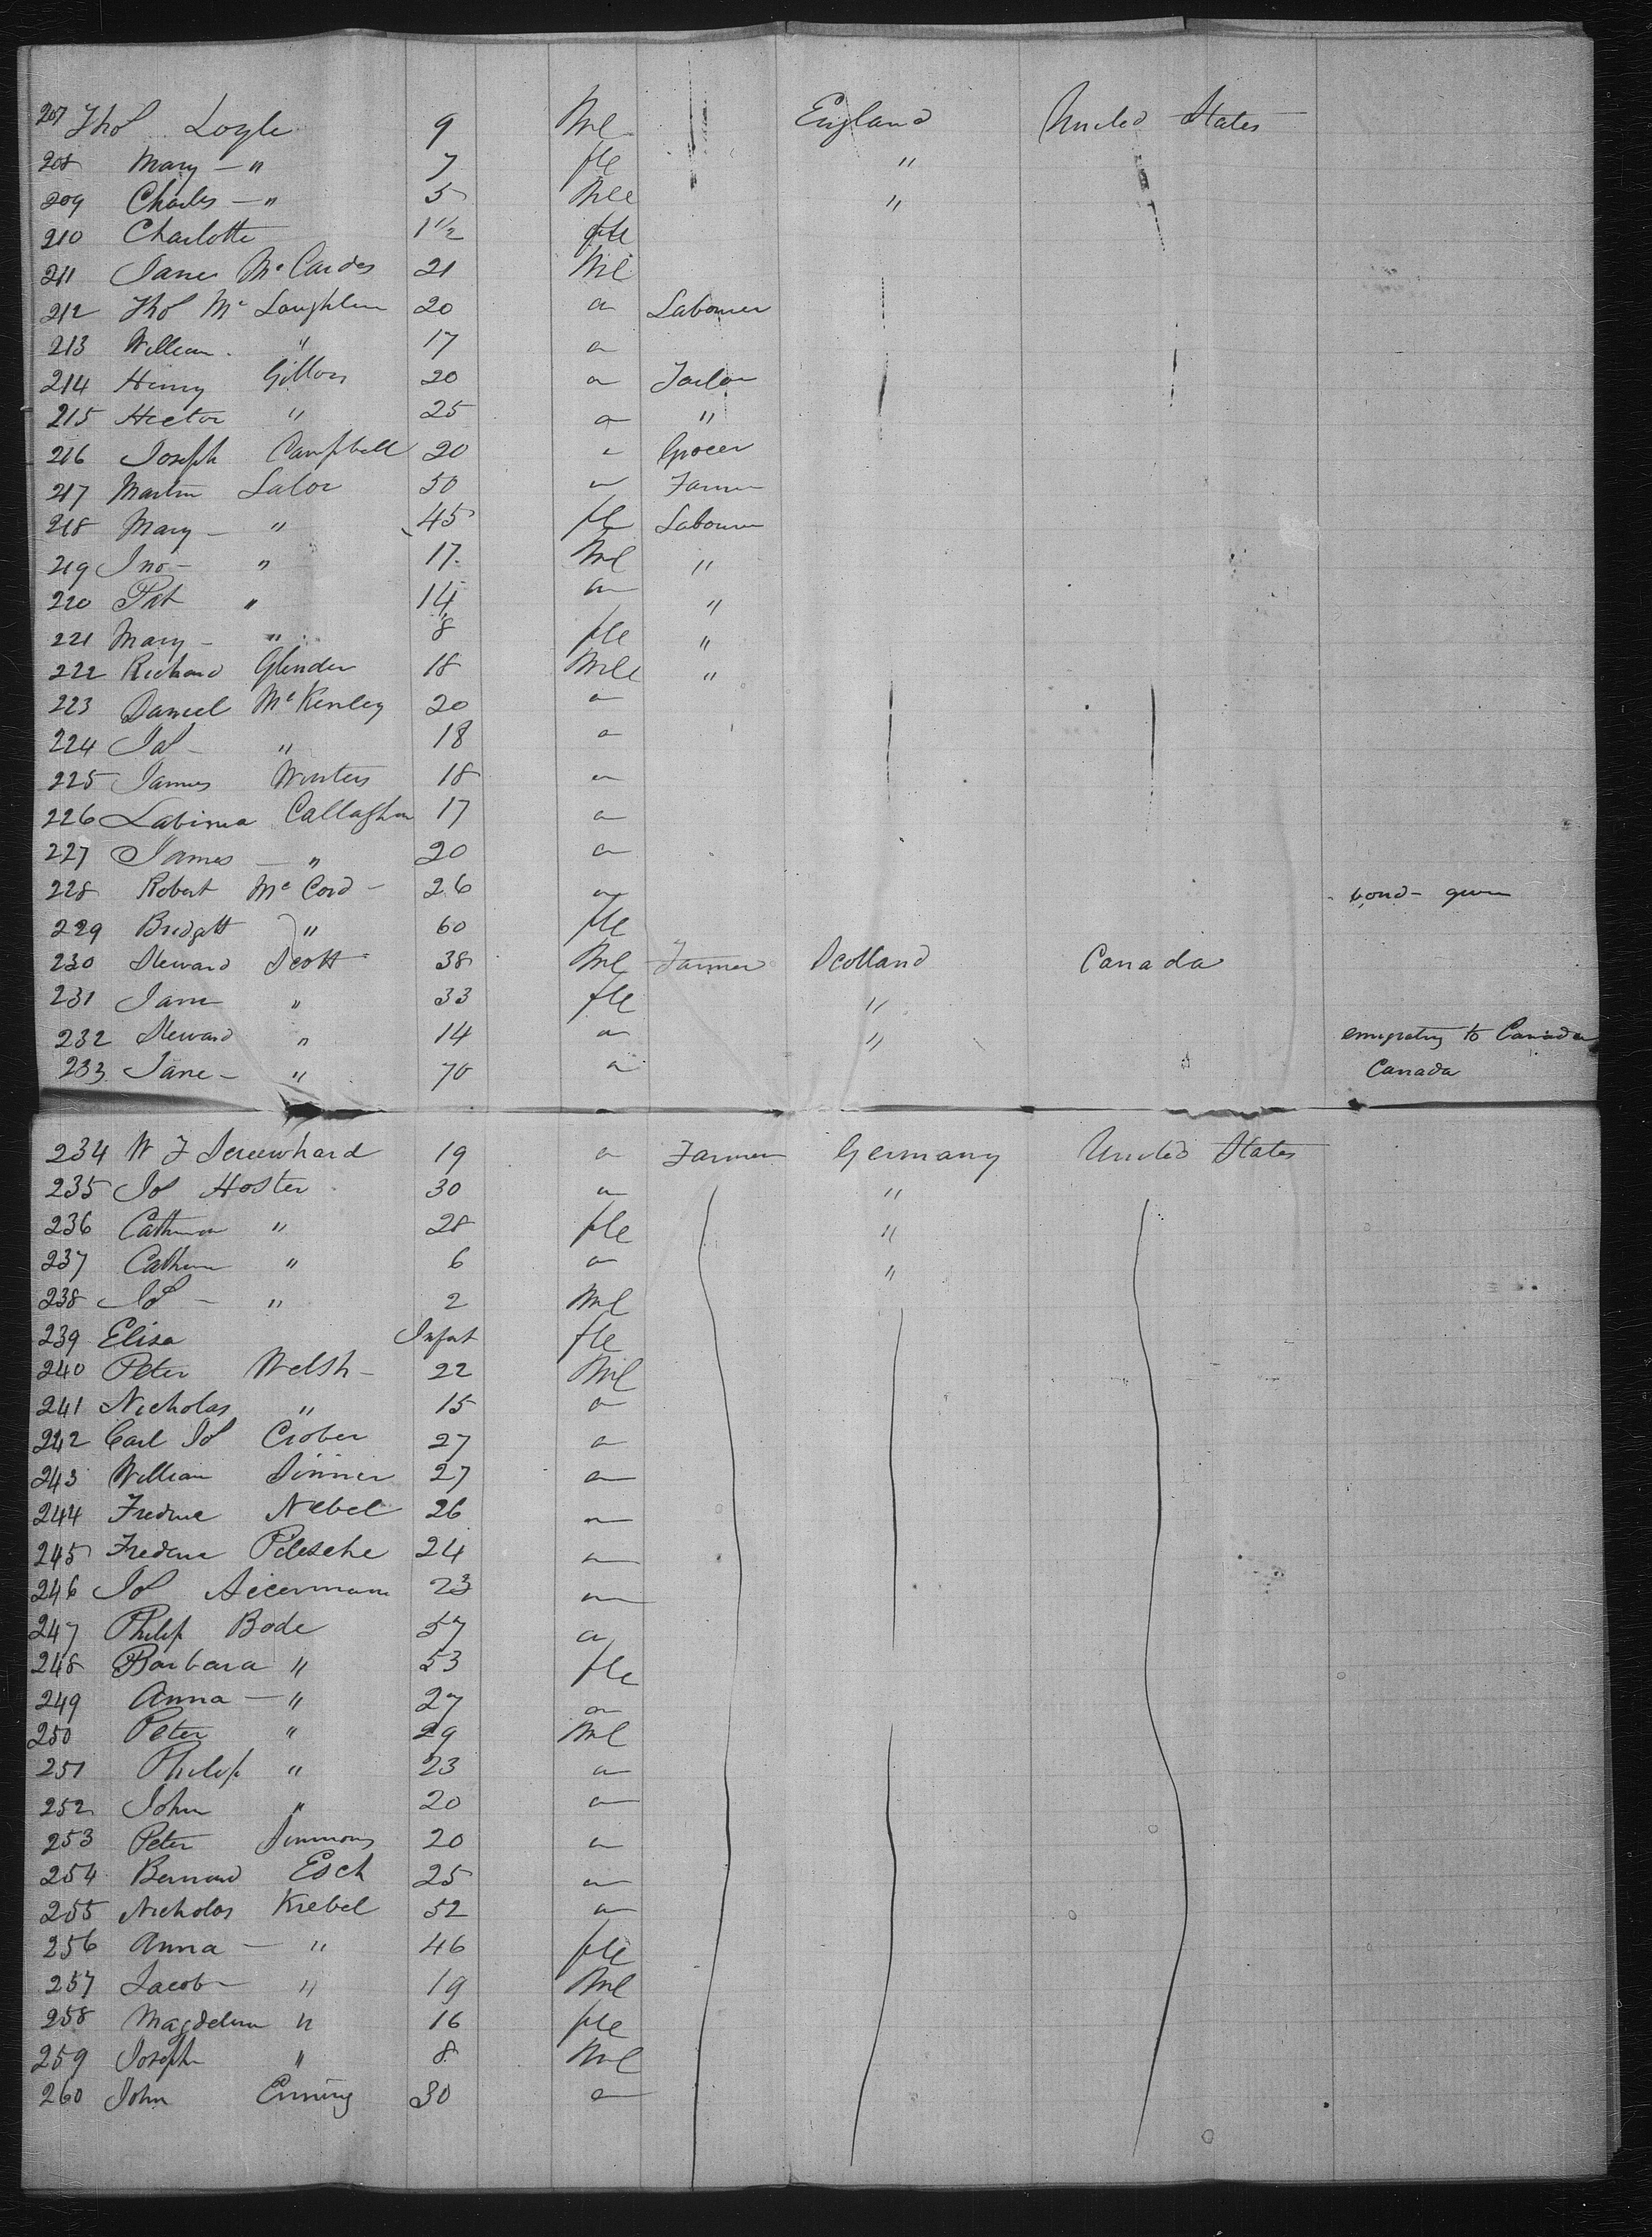 207 Thos Loyle 9 Ml England United States
208 Mary — " 7 fle "
209 Charles — " 5 Mle "
210 Charlotte 1 1/2 fle
211 James McCardes 21 Ml
212 Thos McLaughlin 20 a Labourer
213 William " 17 a
214 Henry Gillon 20 a Tailor
215 Hector " 25 a "
216 Joseph Campbell 20 a Grocer
217 Martin Lalor 50 a Farmer
218 Mary — " 45 fle Labourer
219 Jno — " 17 Ml "
220 Pat " 14 a "
221 Mary — " 8 fle "
222 Richard Glender 18 Mle "
223 Daniel McKinley 20 a
224 Jas — " 18 a
225 James Winters 18 a
226 Labinia Callaghan 17 a
227 James — " 20 a
228 Robert McCord — 26 a bond - given
229 Bridgett " 60 fle
230 Steward Scott 38 Ml Farmer Scotland Canada
231 Jane " 33 fle "
232 Steward " 14 a " emigrating to Canada
233 Jane — " 70 a Canada
234 W F 19 a Farmer Germany United States
235 Jos Hoster 30 a "
236 Catherine " 28 fle "
237 Catherine " 6 a "
238 Jos — " 2 Ml
239 Elisa Infant fle
240 Peter Welsh — 22 Ml
241 Nicholas " 15 a
242 Carl Jos Crober 27 a
243 William Sinner 27 a
244 Frederic Nebel 26 a
245 Frederic 24 a
246 Jos Aicermann 23 a
247 Philip Bode 57 a
248 Barbara " 53 fle
249 Anna — " 27 a
250 Peter " 29 Ml
251 Philip " 23 a
252 John " 20 a
253 Peter Simmons 20 a
254 Bernard Esch 25 a
255 Nicholas Krebel 52 a
256 Anna — " 46 fle
257 Jacob — " 19 Ml
258 Magdelena " 16 fle
259 Joseph " 8 Ml
260 John 30 a